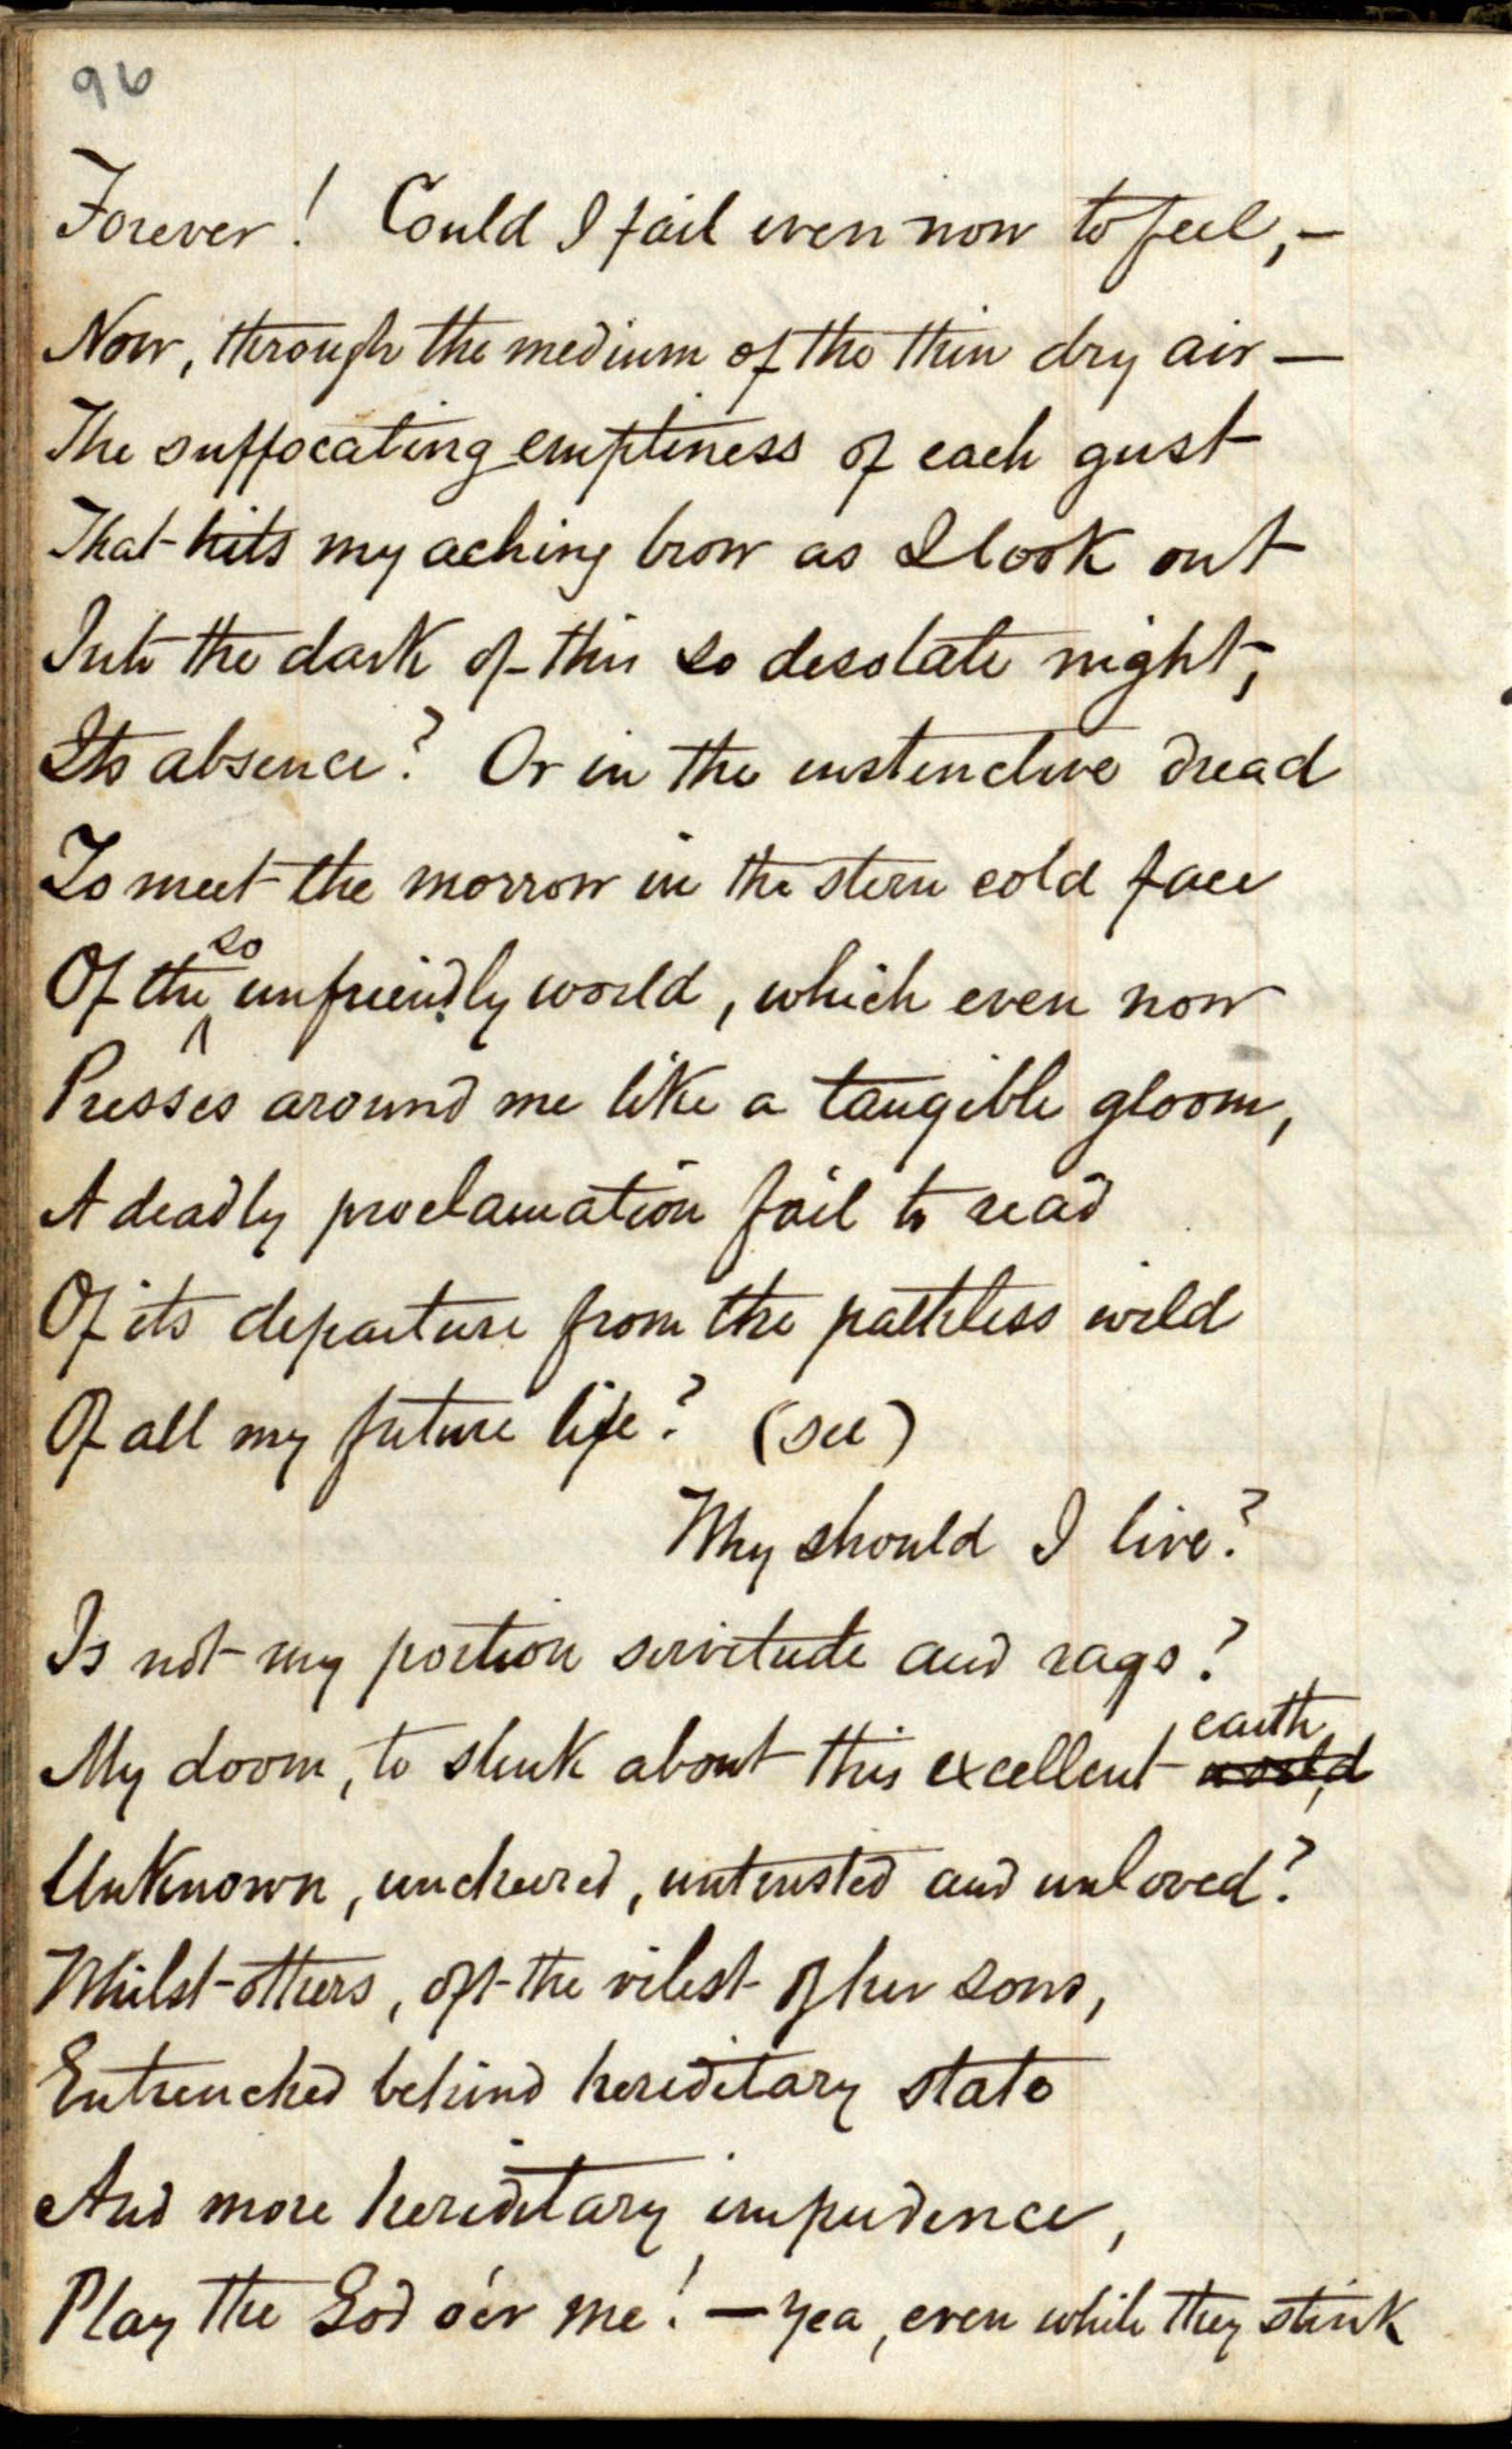 96
Forever! Could I fail even now to feel,—
Now, through the medium of the thin dry air—
The suffocating emptiness of each gust
That hits my aching brow as I look out
Into the dark of this so desolate night,
Its absence? Or in the instinctive dread
To meet the morrow in the stern cold face
Of the so unfriendly world, which even now
Presses around me like a tangible gloom,
A deadly proclamation fail to read
Of its departure from the pathless wild
Of all my future life? (See)
Why should I live?
Is not my portion servitude and rags?
My doom, to slink about this excellent world earth,
Unknown, uncheered, untrusted and unloved?
Whilst others, oft the vilest of her sons,
Entrenched behind hereditary state
And more hereditary impudence,
Play the God o'er me! — Yea, even while they stink